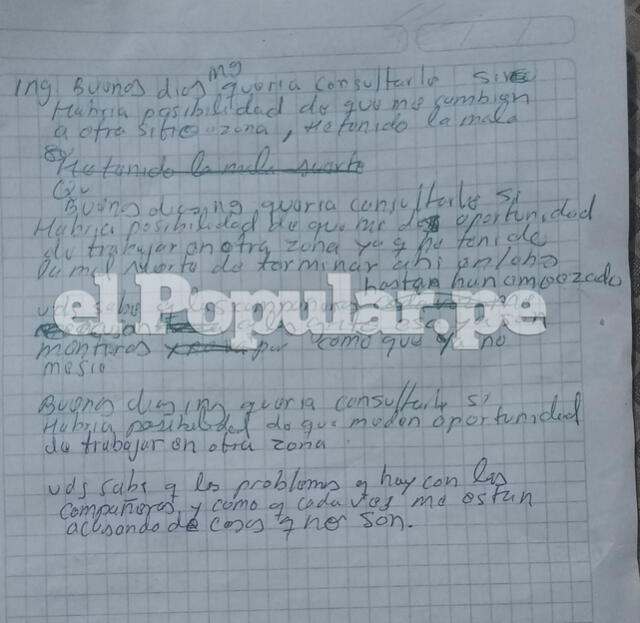 mg
Ing Buenos dias queria consultarle si
Habria posibilidad de que me cambien
a otra sitio o zona, He tenido la mala
He tenido la mala suerte
Buenos dias ing queria consultarle si
Habria posibilidad de que me de oportunidad
de trabajar en otra zona ya q he tenido
la mal suerte de terminar ahi en
hastan han
el Popular.pe
uds sabe
mentiras por como que ya no
Buenos dias ing queria consultarle si
Habria posibilidad de que me den oportunidad
de trabajar en otra zona
uds sabe q los problemas q hay con las
compañeras y como q cada ves me estan
acusando de cosas q no son.